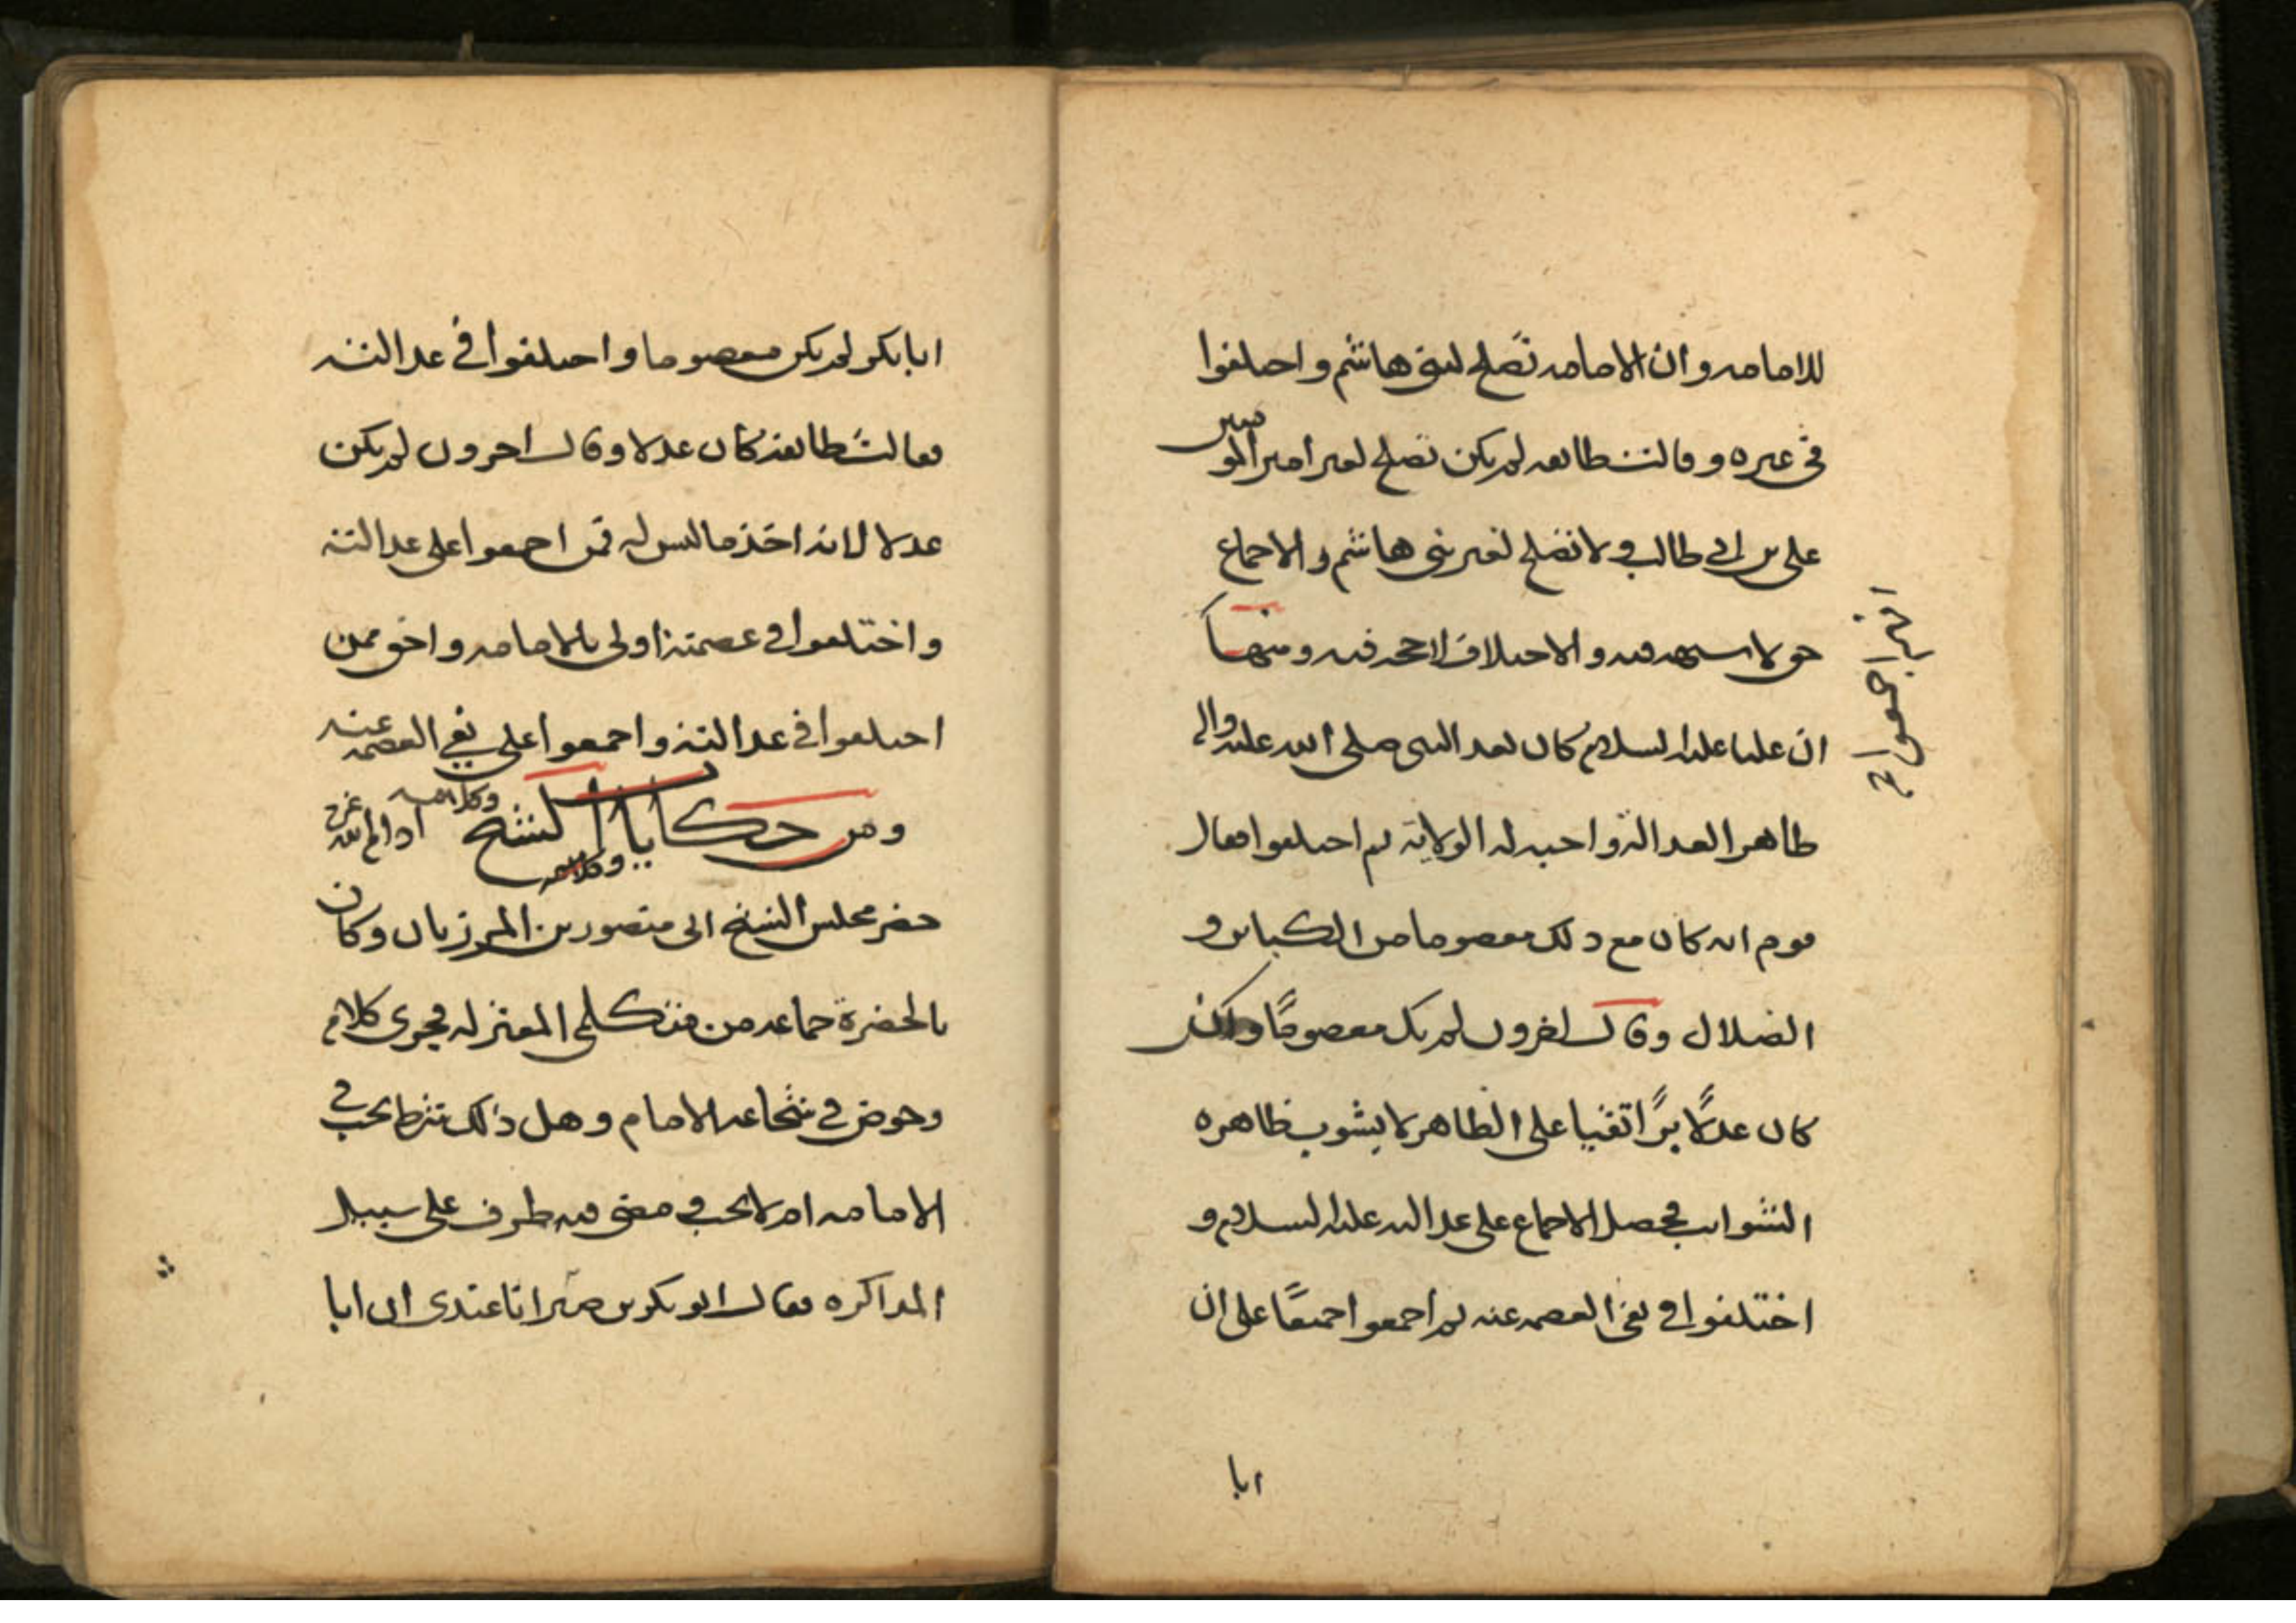 للامامه وان الامامه تصلح لبنى هاشم واختلفوا
في غيره وقالت طائفه لم يكن تصلح لغير امير المومنين
على بن ابي طالب ولا تصلح لغير بنى هاشم والاجماع
حق لا شبهه فيه والاختلاف لا حجه فيه ومنها
ان عليا عليه السلام كان بعد النبى صلى الله عليه واله
ظاهر العداله واجبه له الولاية ثم اختلفوا فقال
قوم انه كان مع ذلك معصوما من الكبائر و
الضلال وقال اخرون لم يك معصومًا ولكن
كان عدلًا برًا تقيا على الظاهر لا يشوب ظاهره
الشوائب فحصل الاجماع على عدالته عليه السلام و
اختلفوا في نفى العصمه عنه ثم اجمعوا جميعًا على ان
ابا
ابا بكر لم يكن معصوما واختلفوا في عدالته
فقالت طائفه كان عدلا وقال اخرون لم يكن
عدلا لانه اخذ ما ليس له فمن اجمعوا على عدالته
واختلفوا في عصمته اولى بالامامه واحق ممن
اختلفوا في عدالته واجمعوا على نفي العصمه عنه
ومن حكايات الشيخ وكلامه ادام الله عزه
وكلامه
حضر مجلس الشيخ ابى منصور بن المرزبان وكان
بالحضرة جماعه من متكلمى المعتزله فجرى كلام
وخوض في شجاعه الامام وهل ذلك شرط يجب في
الامامه ام لا يجب فمضى فيه طرف على سبيل
المذاكره فقال ابو بكر بن صرايا عندى ان ابا